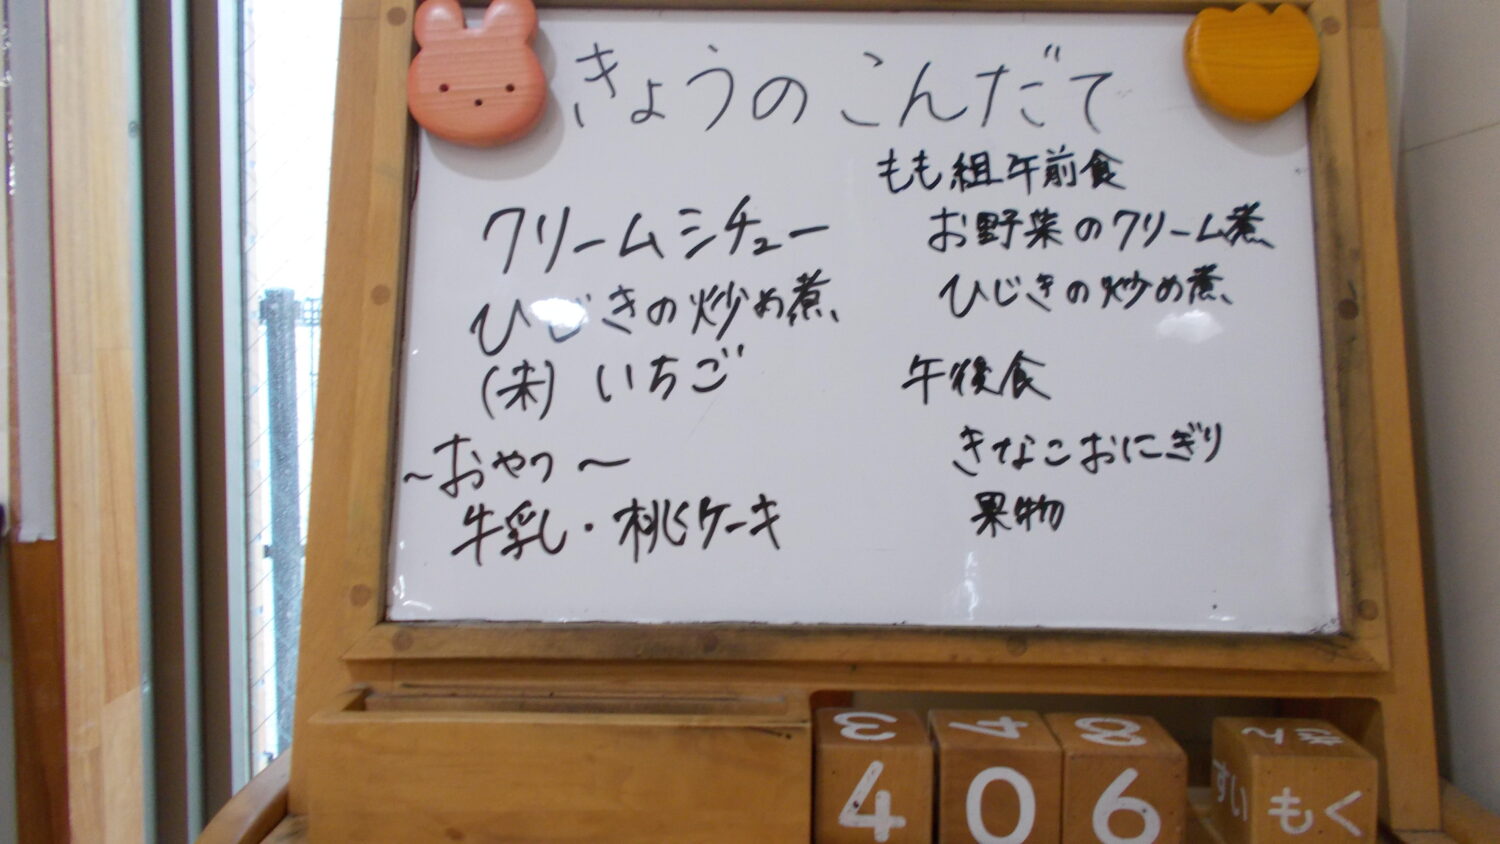 きょうのこんだて
クリームシチュー
ひじきの炒め煮
(未) いちご
～おやつ～
牛乳・桃ケーキ
もも組午前食
お野菜のクリーム煮
ひじきの炒め煮
午後食
きなこおにぎり
果物
3 4 8 きん
4 0 6 すい もく